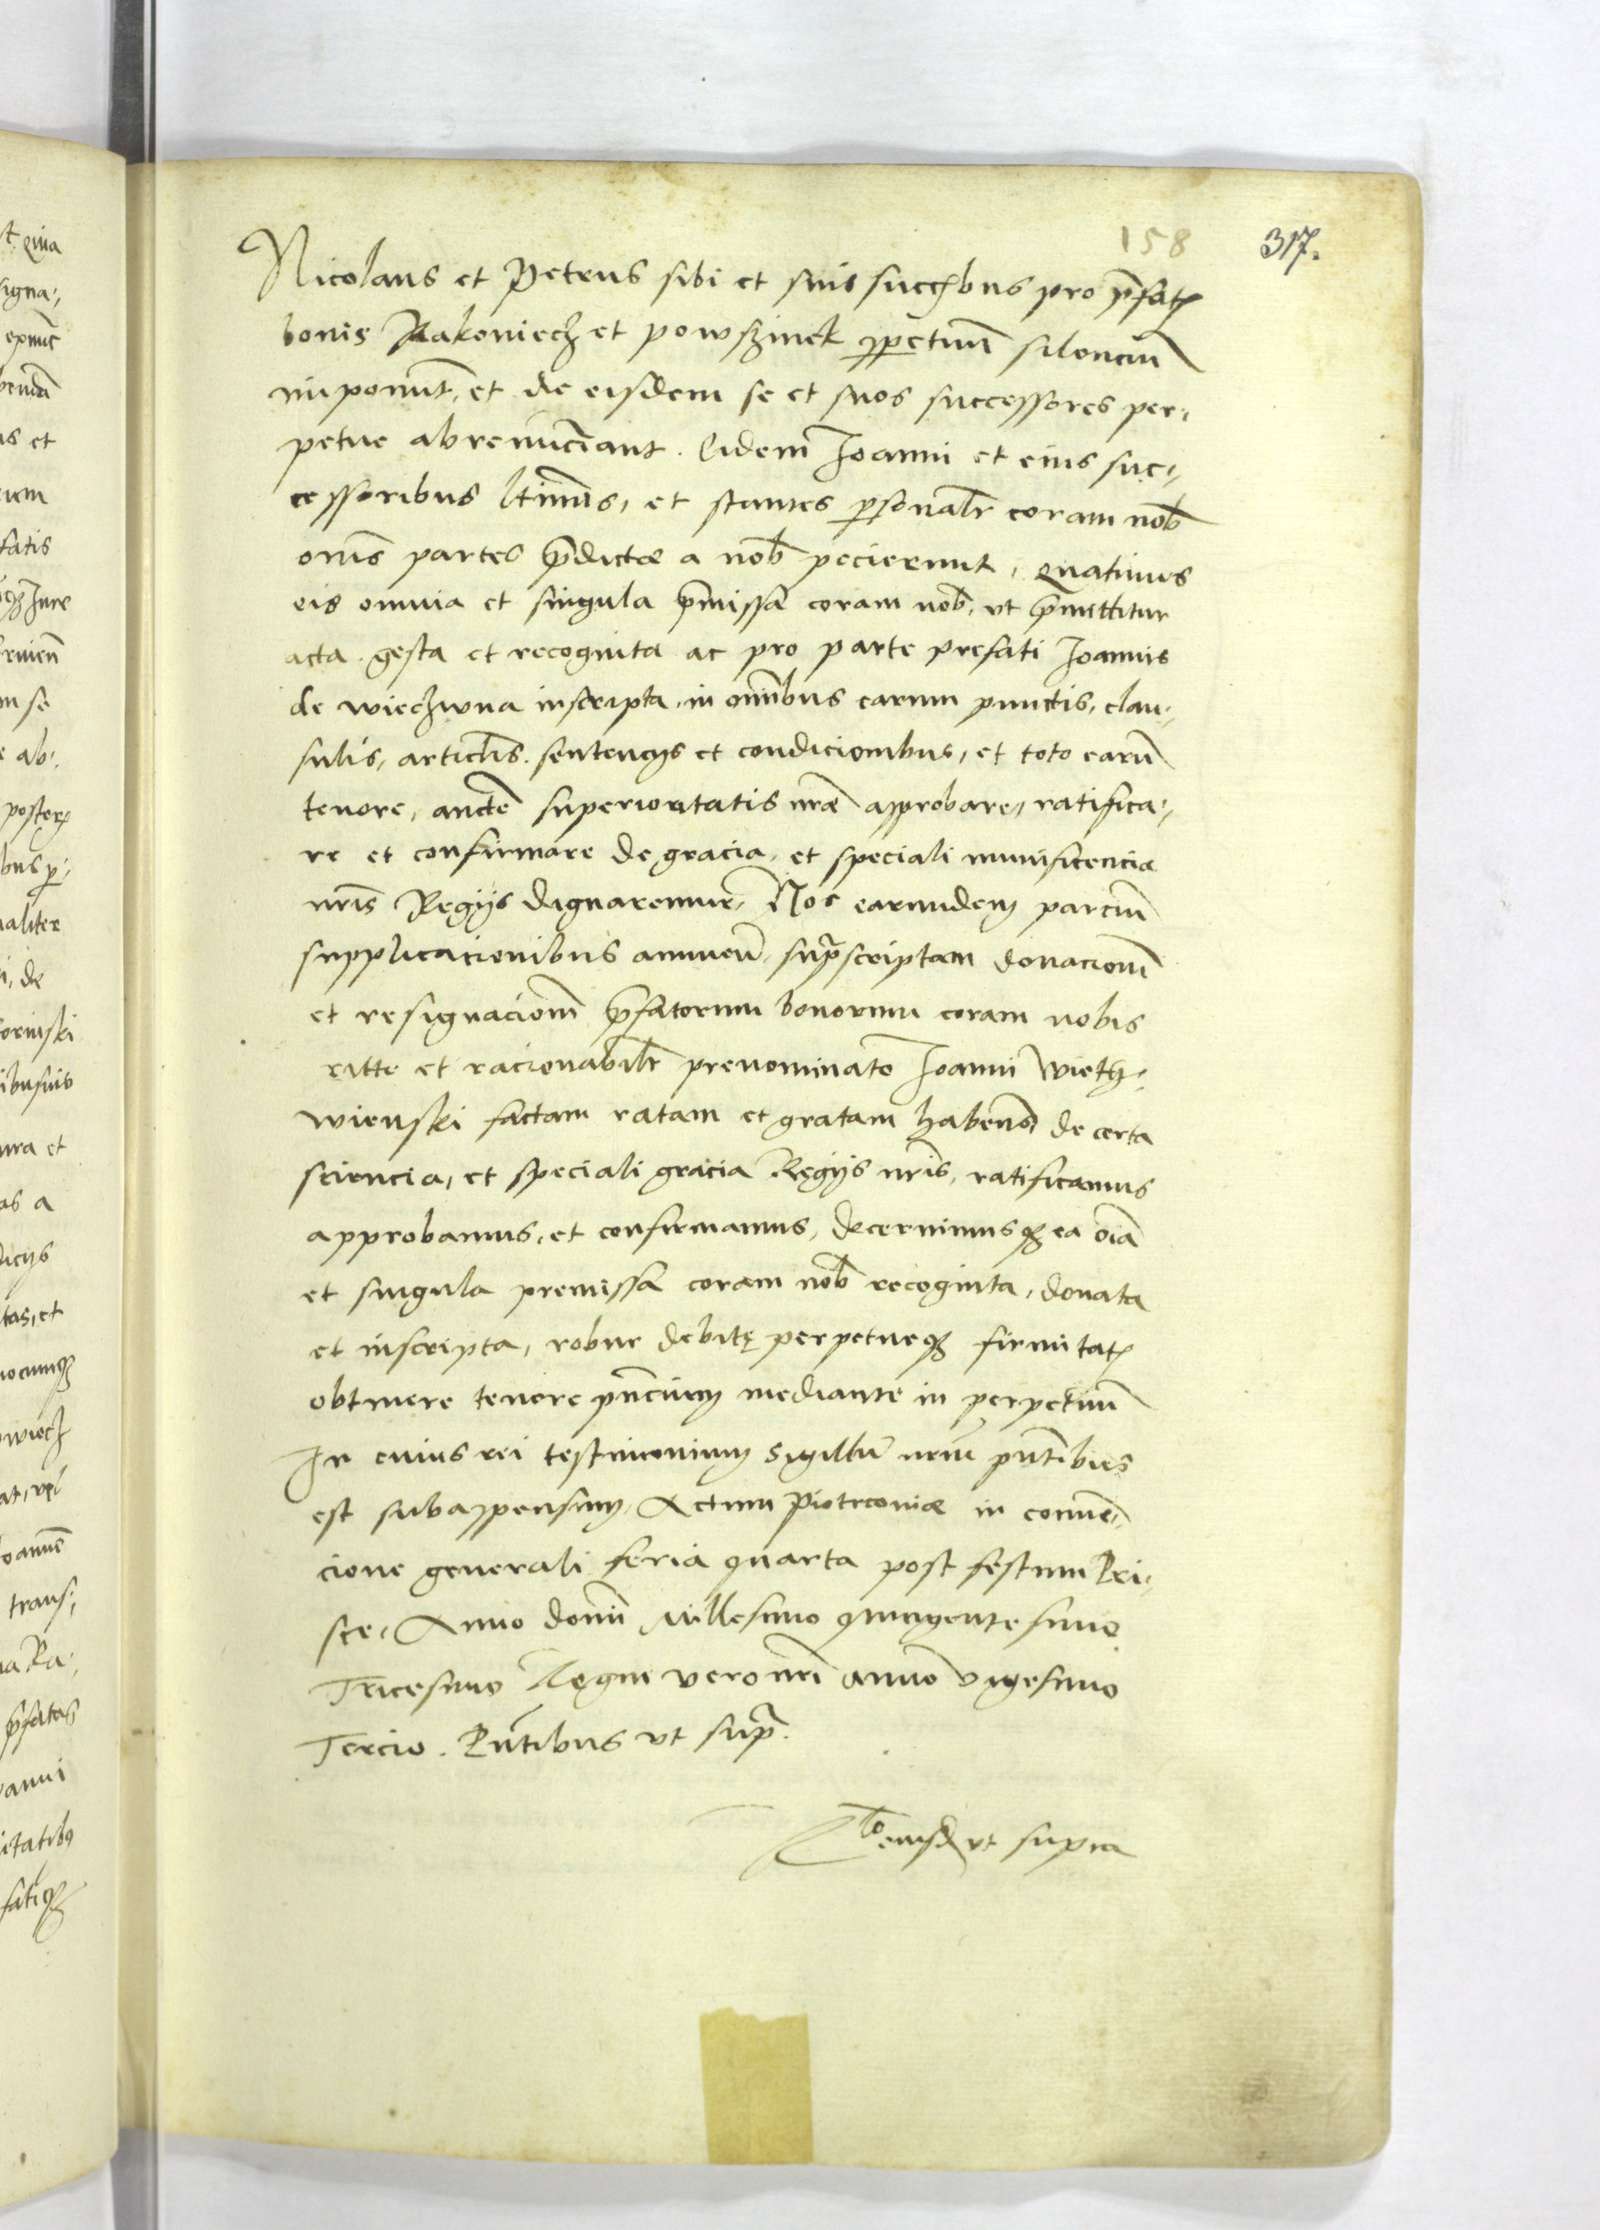 158 317.
Nicolaus et Petrus sibi et suis succribus pro p̄fatis
bonis Rakoniech et powszinek ꝑpetuū silenciū
imponunt, et de eisdem se et suos successores per-
petue abrenūciant. Eidem Joanni et eius suc-
cessoribus ltimis, et stantes ꝑsonalr coram nob
om̄s partes p̄dictae a nob pecierunt, quatinus
eis omnia et singula p̄missa coram nob, ut p̄mittitur
acta, gesta et recognita ac pro parte prefati Joannis
de wiechwna inscripta, in om̄ibus earum punctis, clau-
sulis, articlis, sentencys et condicionibus, et toto earū
tenore, aucte superioritatis nr̄ae approbare, ratifica-
re et confirmare de gracia, et speciali munificencia
nr̄is Regijs dignaremur, Nos earundem parciū
supplicacionibus annuen̄, sup̄scriptam donacionē
et resignacionē p̄fatorum bonorum coram nobis
ritte et racionabilr prenominato Joanni Wiech-
wienski factam ratam et gratam habentes de certa
sciencia, et speciali gracia Regijs nr̄is, ratificamus
approbamus, et confirmamus, decernimusqꝫ ea oīa
et singula premissa coram nob recognita, donata
et inscripta, robur debitę perpetueqꝫ firmitatis
obtinere tenore pn̄cium mediante in perpetuū
In cuius rei testimonium sigillū nrm̄ pn̄tibus
est subappensum, Actum Piotrcoviae in conven-
cione generali feria quarta post festum Pri-
sce, Anno domi Millesimo quingentesimo
Tricesimo Regni vero nri anno vigesimo
Tercio. Pn̄tibus ut sup̄.
eiusd ut supra